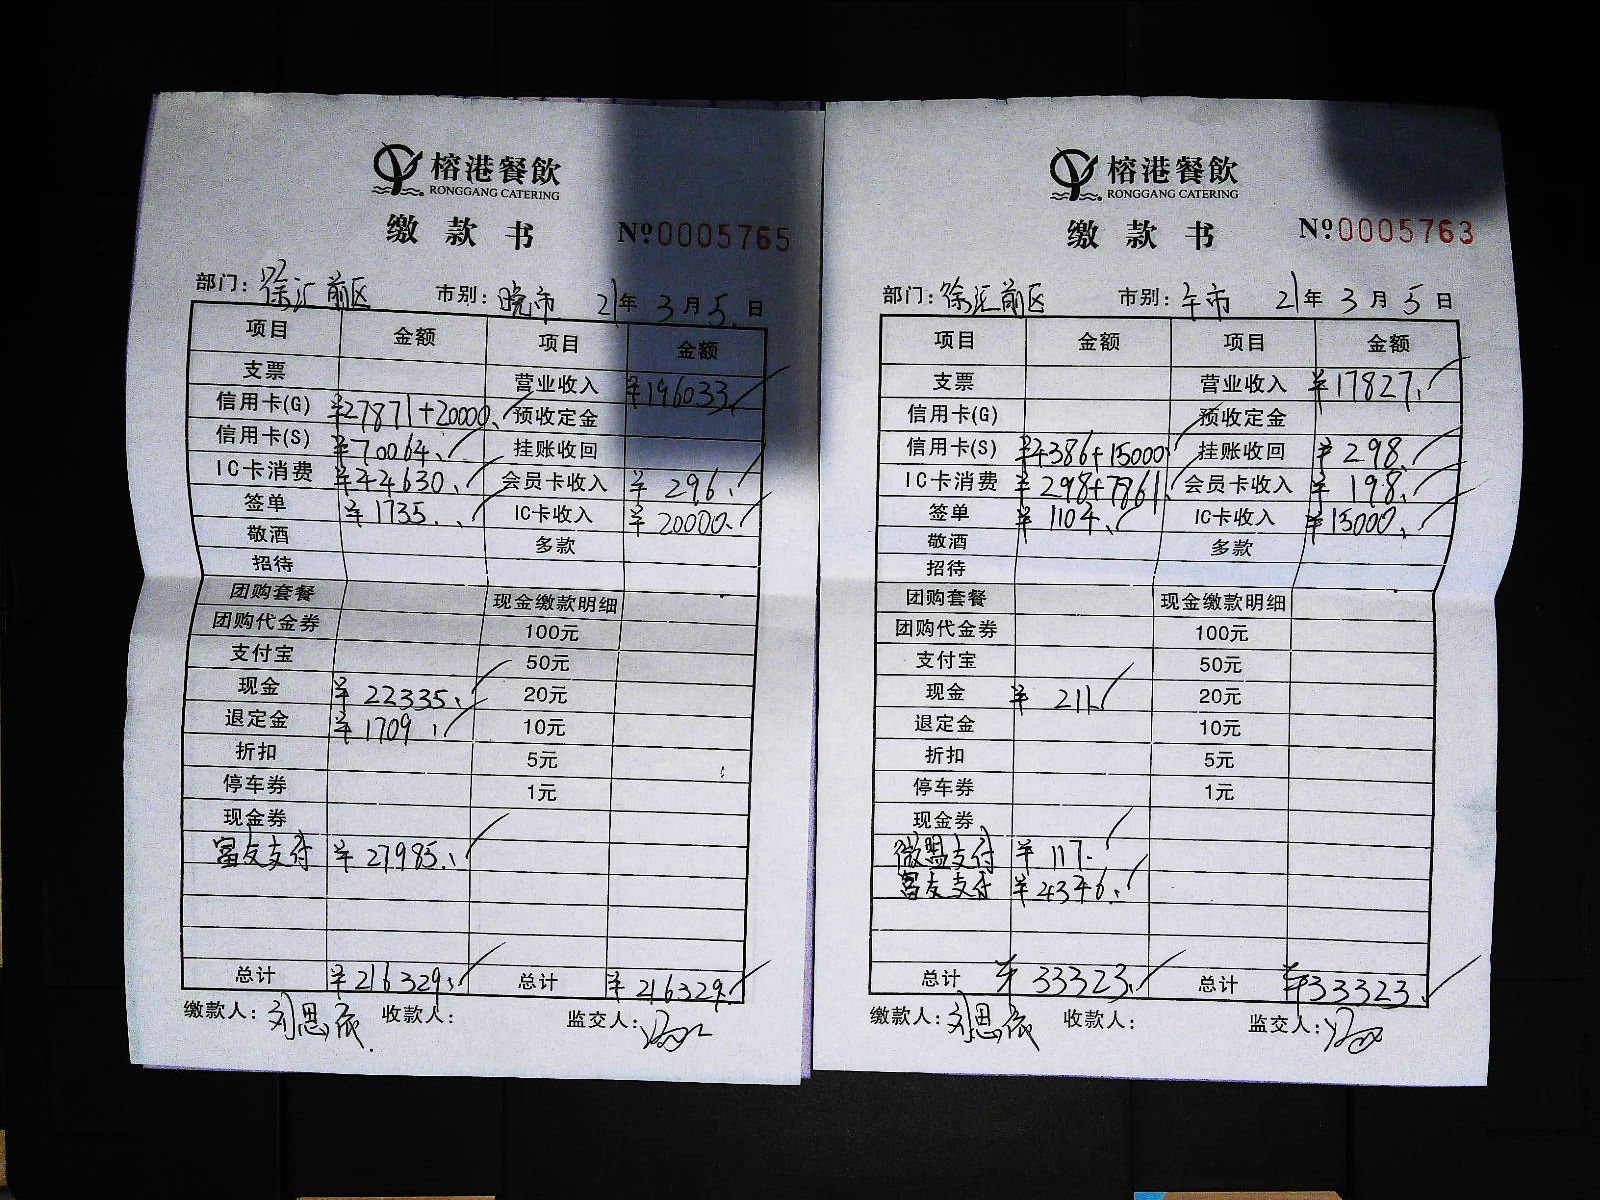 榕港餐飲
RONGGANG CATERING
缴款书
№0005765
部门：徐汇前区 市别：晚市 21年3月5日
项目 金额 项目 金额
支票 营业收入 ¥196033
信用卡(G) ¥27871+20000 预收定金
信用卡(S) ¥70064 挂账收回
IC卡消费 ¥44630 会员卡收入 ¥296
签单 ¥1735 IC卡收入 ¥20000
敬酒 多款
招待
团购套餐 现金缴款明细
团购代金券 100元
支付宝 50元
现金 ¥22335 20元
退定金 ¥1709 10元
折扣 5元
停车券 1元
现金券
富友支付 ¥27985
总计 ¥216329 总计 ¥216329
缴款人：刘思依 收款人： 监交人：
榕港餐飲
RONGGANG CATERING
缴款书
№0005763
部门：徐汇前区 市别：午市 21年3月5日
项目 金额 项目 金额
支票 营业收入 ¥17827
信用卡(G) 预收定金
信用卡(S) ¥4386+15000 挂账收回 ¥298
IC卡消费 ¥298+7861 会员卡收入 ¥198
签单 ¥1104 IC卡收入 ¥15000
敬酒 多款
招待
团购套餐 现金缴款明细
团购代金券 100元
支付宝 50元
现金 ¥211 20元
退定金 10元
折扣 5元
停车券 1元
现金券
微盟支付 ¥117
富友支付 ¥4346
总计 ¥33323 总计 ¥33323
缴款人：刘思依 收款人： 监交人：